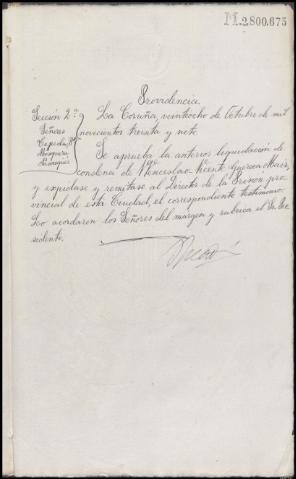 M.2800.675
Providencia
Sección 2ª
Señores
La Coruña, veintiocho de Octubre de mil
novecientos treinta y siete
Se aprueba la anterior liquidación de
condena de Wenceslao Vicente
y expídase y remítase al Director de la Prisión pro-
vincial de esta Ciudad, el correspondiente testimonio.
Lo acordaron los Señores del margen y rubrica el Sr. Pre-
sidente.